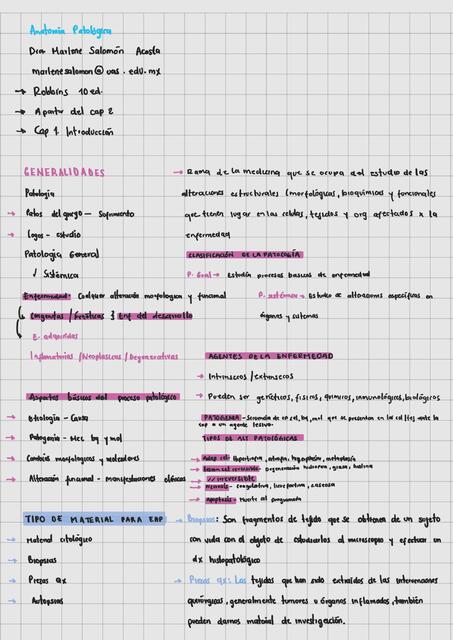 Anatomía Patológica
Dra. Marlene Salomón Acosta
marlenesalomon@uas.edu.mx
→ Robbins 10 ed.
→ A partir del cap 2
→ Cap 1 Introducción
GENERALIDADES
Patología
→ Patos del griego — Sufrimiento
→ Logos - estudio
Patología General
√ Sistémica
Enfermedad: Cualquier alteración morfologica y funcional
Congenitas / Genéticas } Enf del desarrollo
E. adquiridas
Inflamatorias / Neoplasicas / Degenerativas
→ Rama de la medicina que se ocupa del estudio de las
alteraciones estructurales (morfológicas, bioquimicas y funcionales
que tienen lugar en las celulas, tejidos y org afectados x la
enfermedad
CLASIFICACIÓN DE LA PATOLOGÍA
P. Gral → Estudia procesos basicos de enfermedad
P. sistémica → Estudio de alteraciones especificas en
órganos y sistemas
AGENTES DE LA ENFERMEDAD
→ Intrinsecos / extrinsecos
→ Pueden ser genéticos, fisicos, quimicos, inmunológicos, biológicos
Aspectos básicos del proceso patológico
→ Etiologia - Causa
→ Patogenia - Mec bq y mol
→ Cambios morfologicos y moleculares
→ Alteración funcional - manifestaciones clínicas
PATOGENIA - Secuencia de ep cel, bq, mol que se presentan en las cel/tej ante la
exp a un agente lesivo.
TIPOS DE ALT PATOLÓGICAS
→ Adap cel: Hipertrofia, atrofia, hyperplasia, metaplasia
→ Lesion cel reversible - Degeneración hidropica, grasa, hialina
→ // irreversible
→ Necrosis - coagulativa, licuefactiva, caseosa
→ Apoptosis - Muerte cel programada
TIPO DE MATERIAL PARA EHP
→ Material citológico
→ Biopsias
→ Piezas qx
→ Autopsias
→ Biopsias: Son fragmentos de tejido que se obtienen de un sujeto
con vida con el objeto de estudiarlos al microscopio y efectuar un
dx histopatológico
→ Piezas qx: Los tejidos que han sido extraídos de las intervenciones
quirúrgicas, generalmente tumores u órganos inflamados, también
pueden darnos material de investigación.